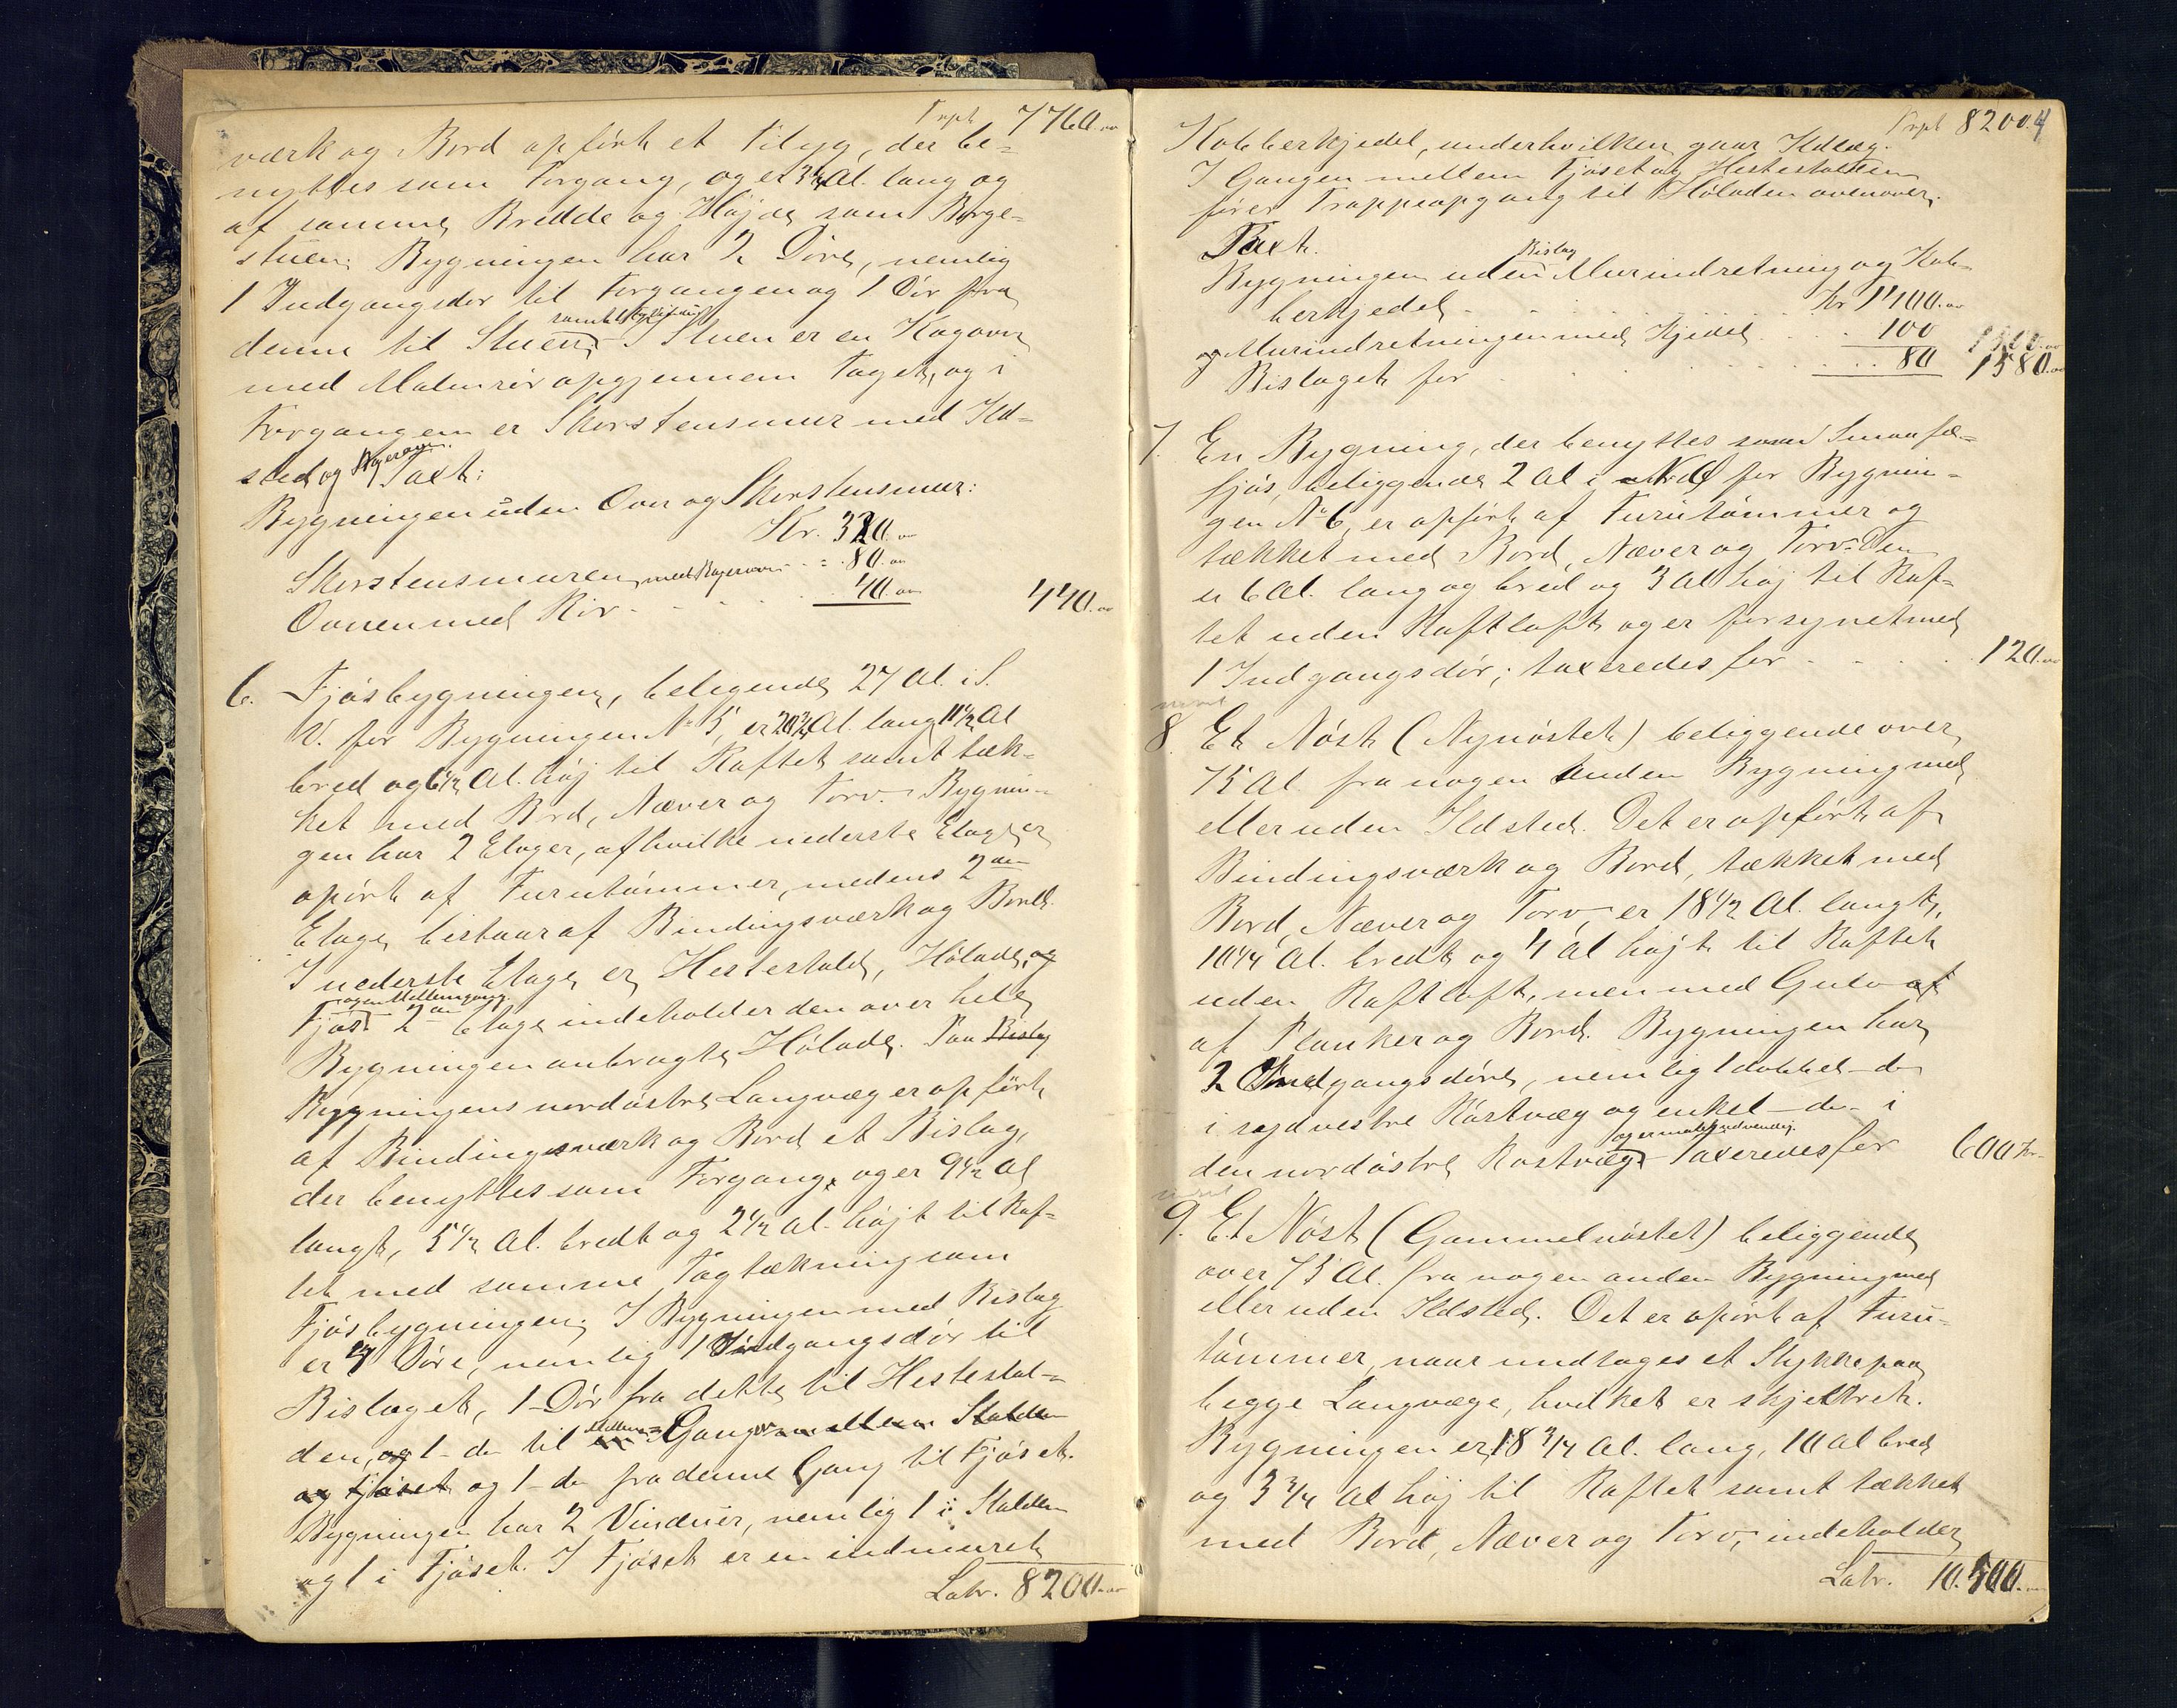 Trpt 7760.
værk og Bord opført et Tilbyg, der be-
nyttes som Forgang, og er 3 3/4 Al. lang og
af samme Bredde og Højde som Borge-
stuen. Bygningen har 2 Døre, nemlig
1 Indgangsdør til Forgangen og 1 Dør fra
denne til Stuen, I Stuen er en Kogovn
med Malmrør opgjennem Taget, og i
Forgangen er Skorstensmur med Ild-
sted og Bagerovn. Taxt:
Bygningen uden Ovn og Skorstensmur:
Kr. 320.
Skorstensmuren med Bagerovn - - 80.
Ovnen med Rør - - - 40.
440.
6. Fjøsbygningen, beligende 27 Al. i S.
V. for Bygningen No 5, er 20 3/4 Al. lang 11 1/2 Al
bred og 6 1/2 Al. høj til Raftet samt tæk-
ket med Bord, Næver og Torv. Bygnin-
gen har 2 Etager, af hvilke nederste Etage er
opørt af Furutømmer, medens 2den
Etage bestaar af Bindingsværk og Bord.
I nederste Etage er Hestestald, Hølade, og
Fjøs. og en Mellemgang. 2den Etage indeholder den over hele
Bygningen anbragte Hølade. Paa Bislag
Bygningens nordøstre Langvæg er opført
af Bindingsværk og Bord et Bislag,
der benyttes som Forgang, og er 9 1/2 Al
langt, 5 1/2 Al. bredt og 2 1/2 Al. højt til Raf-
tet med samme Tagtækning som
Fjøsbygningen. I Bygningen med Bislag
er 4 Døre, nemlig 1 Indgangsdør til
Bislaget, 1 Dør fra dette til Hestestal-
den, og 1 - do til Mellem- Gang mellem Stalden
og Fjøset og 1 - do fra denne Gang til Fjøset.
Bygningen har 2 Vinduer, nemlig 1 i Stalden
og 1 i Fjøset. I Fjøset er en indmuret
Latr. 8200.
Trpt 8200. 4
Kobberkjedel, underhvilken gaar Ildlæg.
I Gangen mellem Fjøset og Hestestalden
fører Trappeopgang til Høladen ovenover.
Taxt.
Bygningen uden Bislag Murindretning og Kob-
berkjedel - - - Kr 1400.
og Murindretningen med Kjedel - - - 100
Bislaget for - - - 80 1580.
7. En Bygning, der benyttes som Smaafæ-
fjøs, beliggende 2 Al i N.Ø for Bygnin-
gen No 6, er opført af Furutømmer og
tækket med Bord, Næver og Torv. Den
er 6 Al. lang og bred og 3 Al høj til Raf-
tet uden Raftloft og er forsynet med
1 Indgangsdør; taxeredes for - - - 120.
8. Et Nøst (Nynøstet) beliggende over
75 Al. fra nogen anden Bygning med
eller uden Ildsted. Det er opført af
Bindingsværk og Bord, tækket med
Bord, Næver og Torv, er 18 1/2 Al. langt,
10 1/4 Al. bredt og 4 Al højt til Raftet
uden Raftloft, men med Gulv af
af Planker og Bord. Bygningen har
2 Indgangsdøre, nemlig 1 dobbel - do
i sydvestre Røstvæg og enkel - do - i
den nordøstre Røstvæg og er malet udvendig. Taxeredes for 600 Kr.
9. Et Nøst (Gammelnøstet) beliggende
over 75 Al. fra nogen anden Bygning med
eller uden Ildsted. Det er opørt af Furu-
tømmer, naar undtages et Stykke paa
begge Langvæge, hvilket er skjeltret.
Bygningen er 18 3/4 Al. lang, 10 Al bred
og 3 3/4 Al høj til Raftet samt tækket
med Bord, Næver og Torv, indeholder
Latr. 10.500.